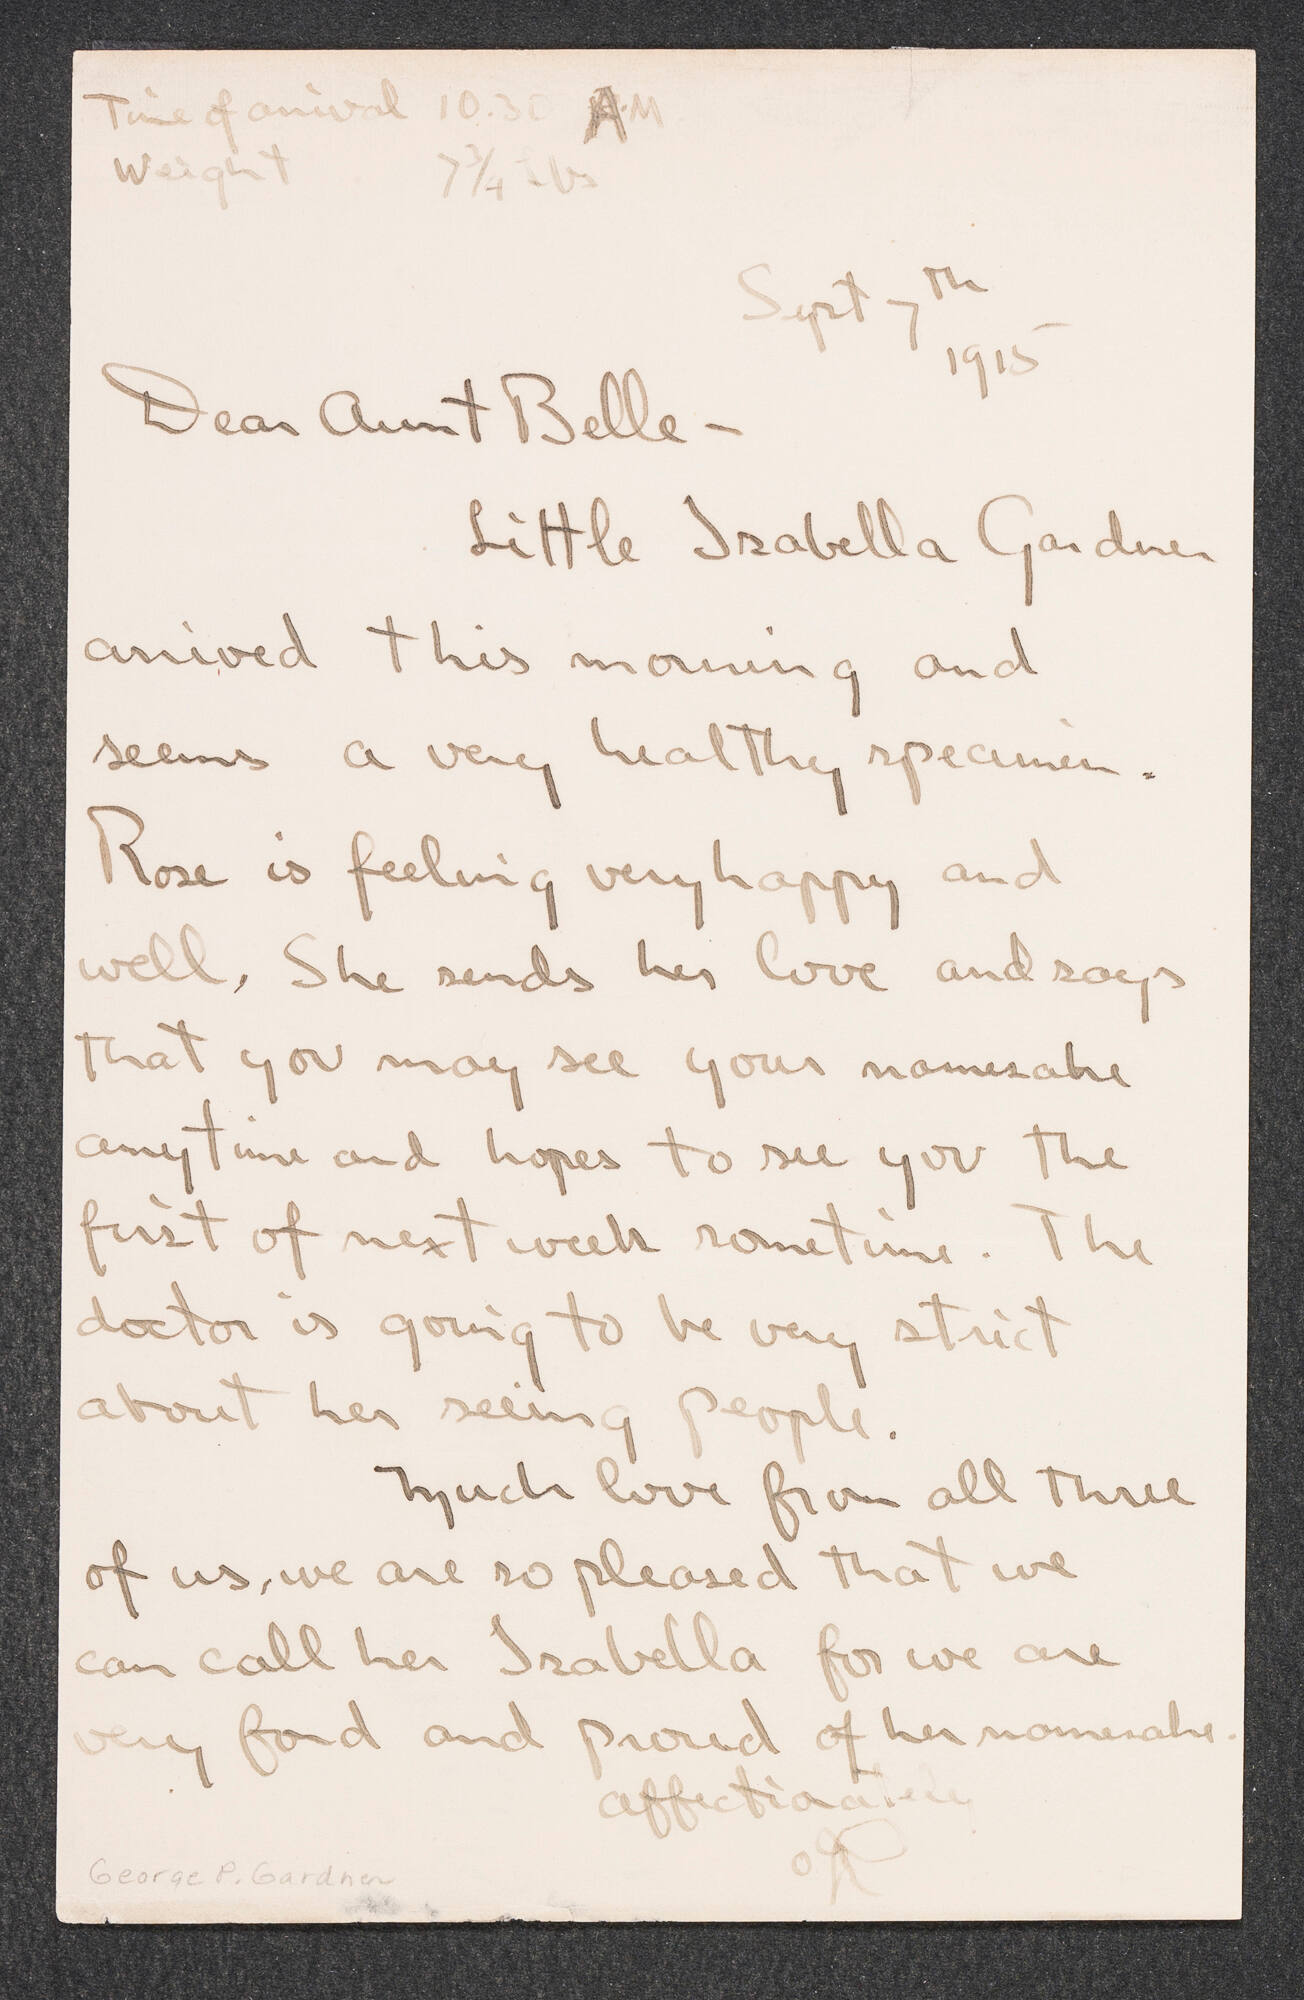 Time of arrival 10.30 A.M
Weight 7 3/4 Lbs
Sept 7th
1915
Dear Aunt Belle -
Little Isabella Gardner
arrived this morning and
seems a very healthy specimen.
Rose is feeling very happy and
well, She sends her love and says
that you may see your namesake
anytime and hopes to see you the
first of next week sometime. The
doctor is going to be very strict
about her seeing people.
Much love from all three
of us, we are so pleased that we
can call her Isabella for we are
very fond and proud of her namesake.
affectionately
George P. Gardner